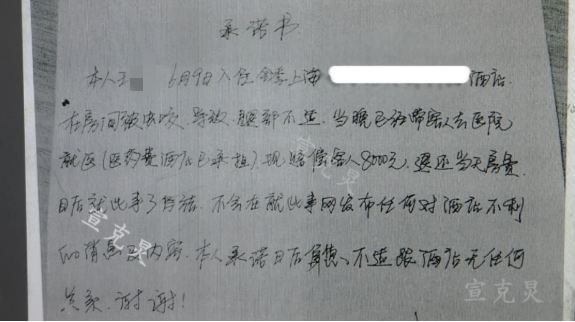 承诺书
本人王 6月9日入住全季上海 酒店.
在房间被虫咬,导致,腿部不适.当晚已经带客人去医院
就医(医药费酒店已承担).现赔偿客人8000元,退还当天房费.
日后就此事了结.不会在就此事网发布任何对酒店不利
的消息及内容.本人承诺日后身体不适跟酒店无任何
关系.谢谢!
宣克炅
宣克炅
宣克炅
宣克炅